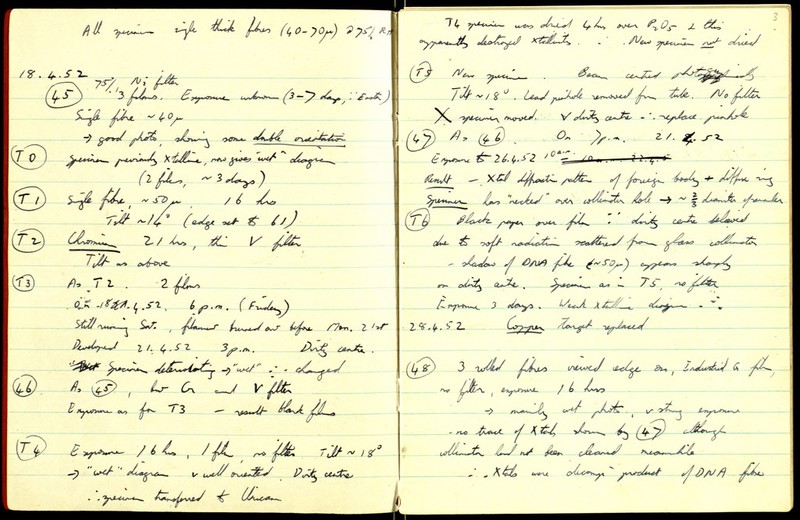 All specimens single thick fibres (40-70μ) @ 75% R.H.
18.4.52 75% Ni filter
(45) 3 films. Exposure unknown (3-7 days, ∵ Easter)
Single fibre ~40μ
→ good photo, showing some double orientation
(T0) Specimen previously Xtalline, now gives "wet" diagram
(2 films, ~3 days)
(T1) Single fibre, ~50μ 16 hrs
Tilt ~14° (edge set to 61)
(T2) Chromium 21 hrs, thin V filter
Tilt as above
(T3) As T2. 2 films
On 18.4.52, 6 p.m. (Friday)
Still running Sat., filament burned out before Mon. 21st
Developed 21.4.52 3 p.m. Dirty centre.
Specimen deteriorating → "wet" ∴ changed
(46) As (45), but Cr and V filter
Exposure as for T3 - result blank films
(T4) Exposure 16 hrs, 1 film, no filter Tilt ~18°
→ "wet" diagram v well oriented. Dirty centre
∴ specimen transferred to Unicam
3
T4 specimen was dried 4 hrs over P2O5 & this
apparently destroyed Xtallinity. ∴ New specimen not dried
(T5) New specimen. Beam centred photographically
Tilt ~18°. Lead pinhole removed from tube. No filter
X specimen moved. V dirty centre ∴ replace pinhole
(47) As (46). On 7 p.m. 21.4.52
Exposure to 26.4.52 10 a.m.
Result - Xtal diffraction pattern of foreign body + diffuse ring
Specimen has "necked" over collimator hole → ~ 2/3 diameter
(T6) Black paper over film ∵ dirty centre believed
due to soft radiation scattered from glass collimator
- shadow of DNA fibre (~50μ) appears sharply
on dirty centre. Specimen as in T5, no filter
Exposure 3 days. Weak Xtalline diagram ∴
28.4.52 Copper target replaced
(48) 3 rolled fibres viewed edge on, Industrial G film,
no filter, exposure 16 hrs
→ mainly wet photo, v strong exposure
- no trace of Xtals shown by (47) although
collimator had not been cleaned meanwhile
∴ Xtals were decomp. product of DNA fibre